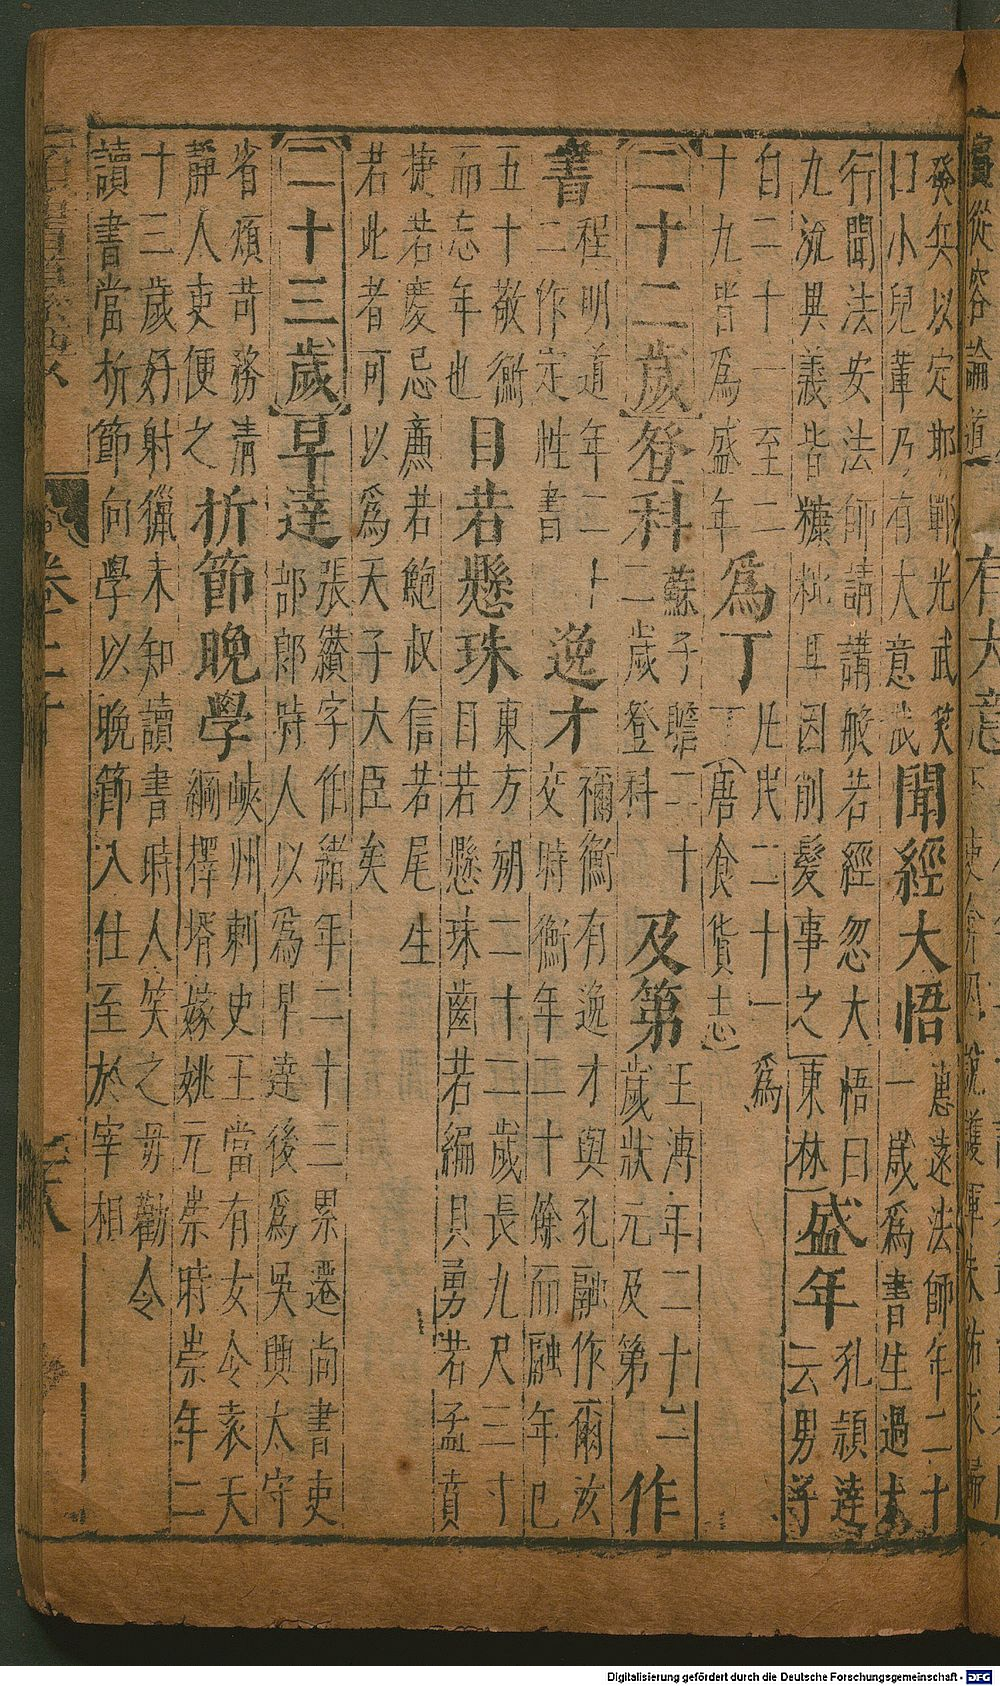 癸矣以定耶鄲光武笑曰小兒輩乃有大意哉聞經大悟惠遠法師年二十一歲爲書生過太
行聞法安法師請講般若經忽大悟曰九流異義皆糠粃耳因削髮事之東林盛年孔穎達云男子
自二十一至二十九皆爲盛年爲丁凡民二十一爲丁唐食貨志
二十二歲登科蘇子瞻二十二歲登科及第王溥年二十二歲狀元及第作
書程明道年二十二作定性書逸才禰衡有逸才與孔融作爾汝交時衡年二十餘而融年已
五十敬衡而忘年也目若懸珠東方朔二十二歲長九尺三寸目若懸珠齒若編貝勇若孟賁
捷若慶忌廉若鮑叔信若尾生若此者可以爲天子大臣矣
二十三歲早達張纘字伯緒年二十三累遷尚書吏部郎時人以爲早達後爲吳興太守
省煩苛務清靜人吏便之折節晚學峽州刺史王當有女令袁天綱擇壻嫁姚元崇時崇年二
十三歲好射獵未知讀書時人笑之毋勸令讀書當折節向學以晚節入仕至於宰相
Digitalisierung gefördert durch die Deutsche Forschungsgemeinschaft - DFG